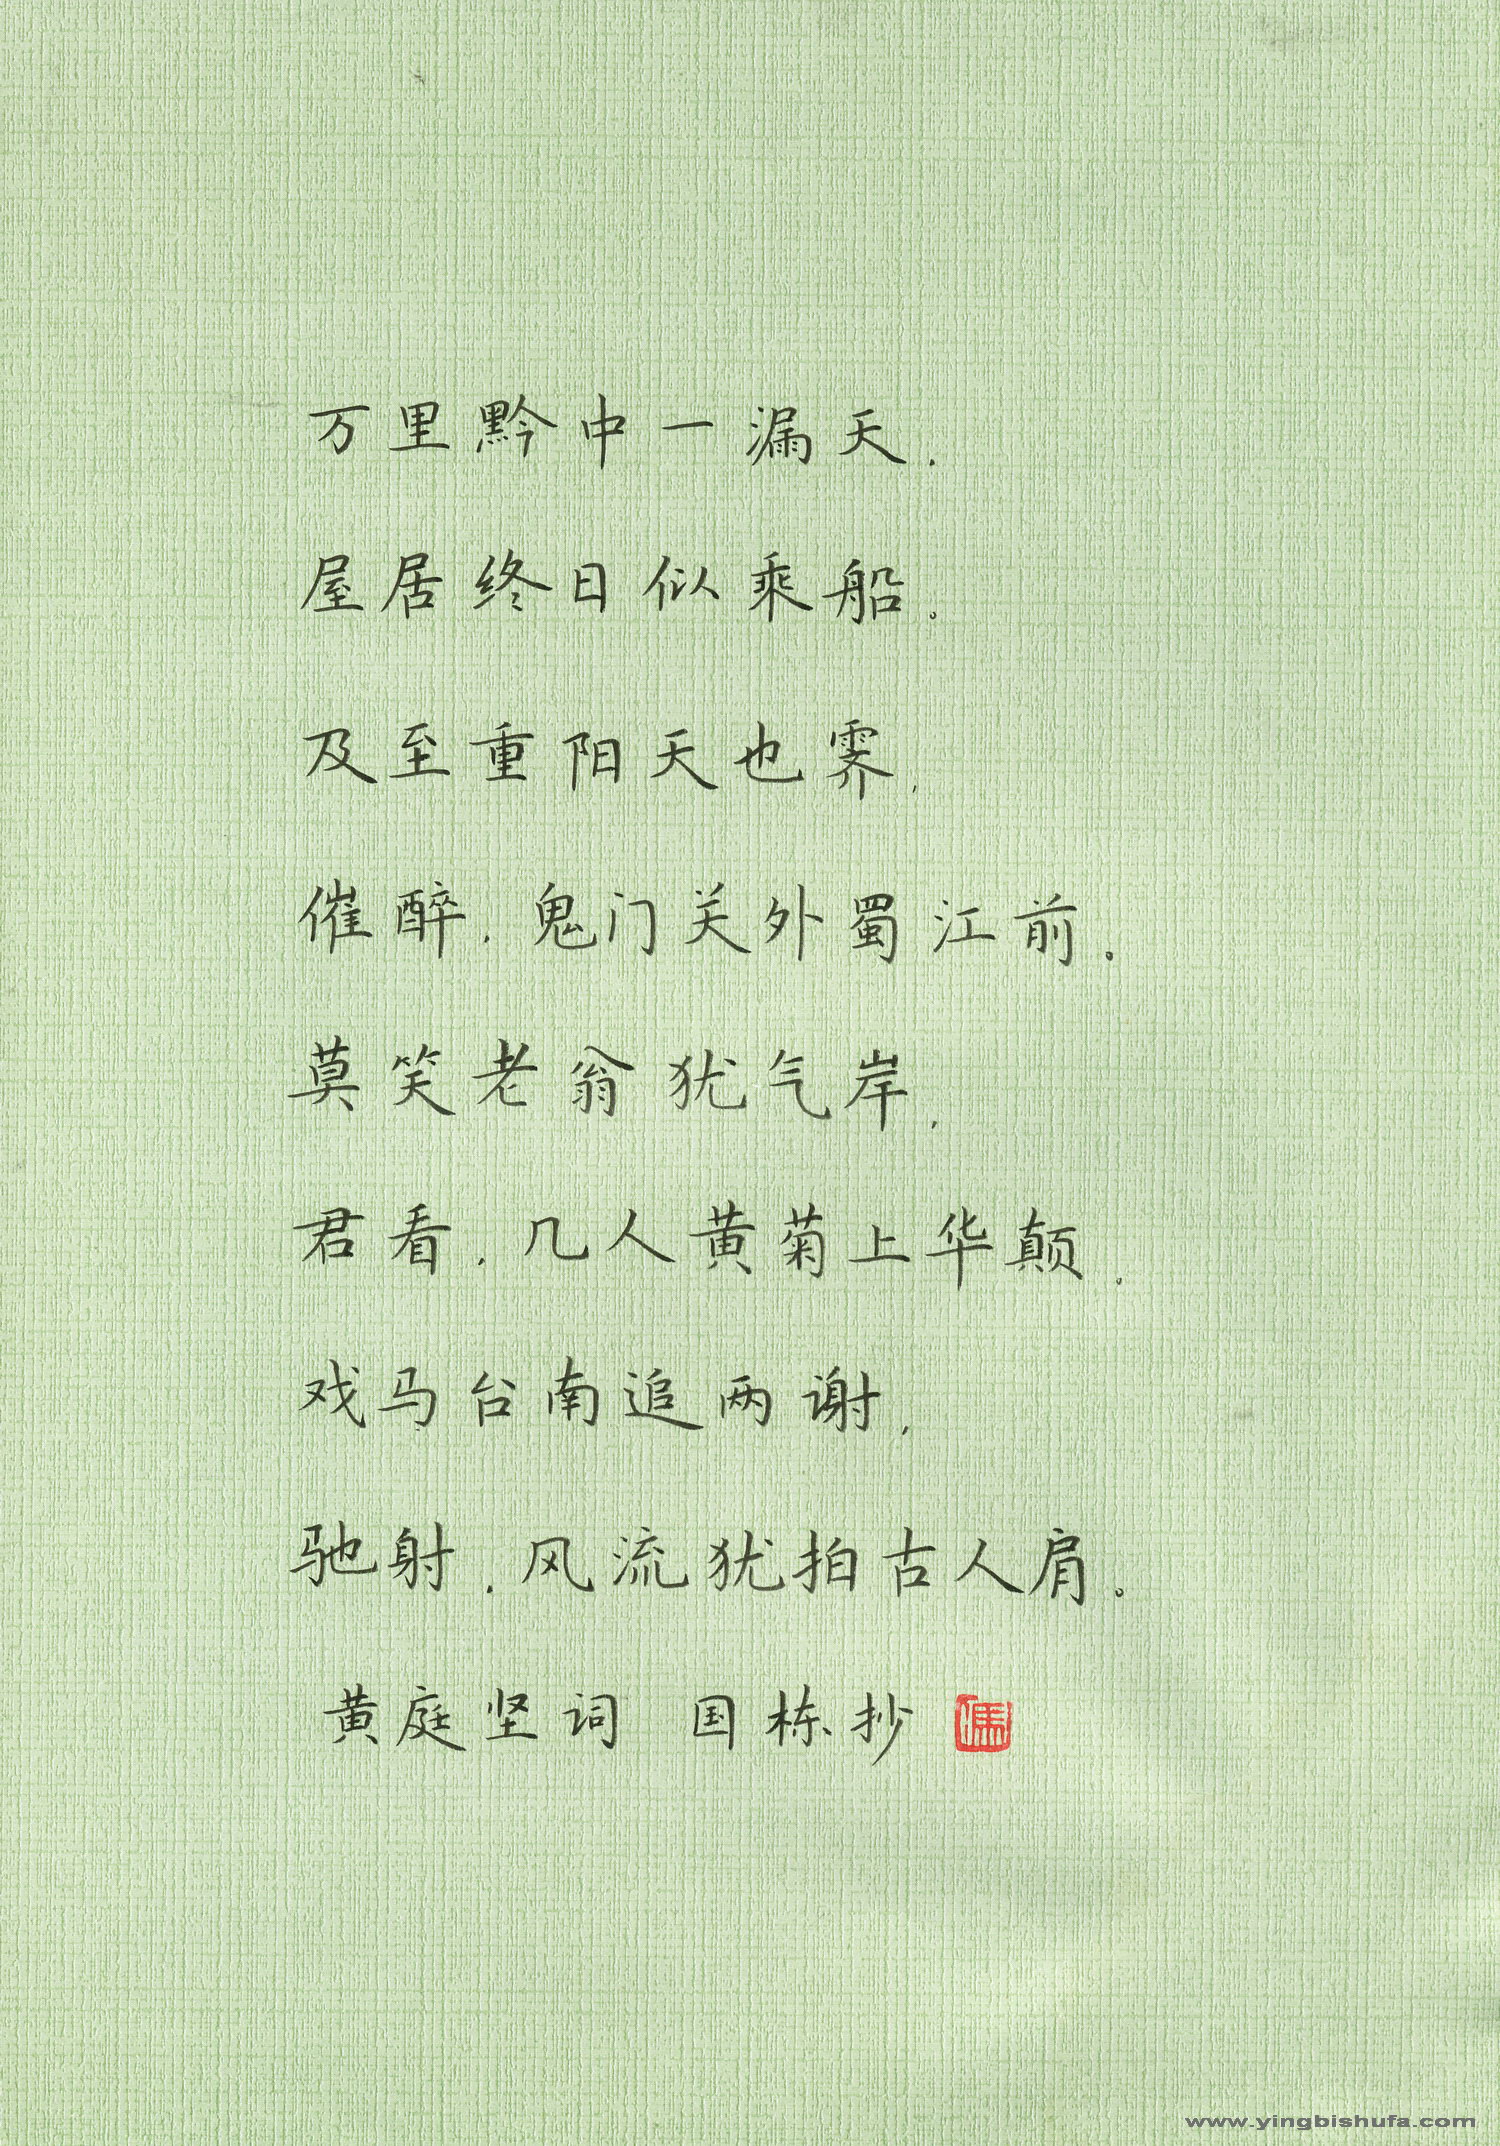 万里黔中一漏天，
屋居终日似乘船。
及至重阳天也霁，
催醉，鬼门关外蜀江前。
莫笑老翁犹气岸，
君看，几人黄菊上华颠。
戏马台南追两谢，
驰射，风流犹拍古人肩。
黄庭坚词 国栋抄
www.yingbishufa.com